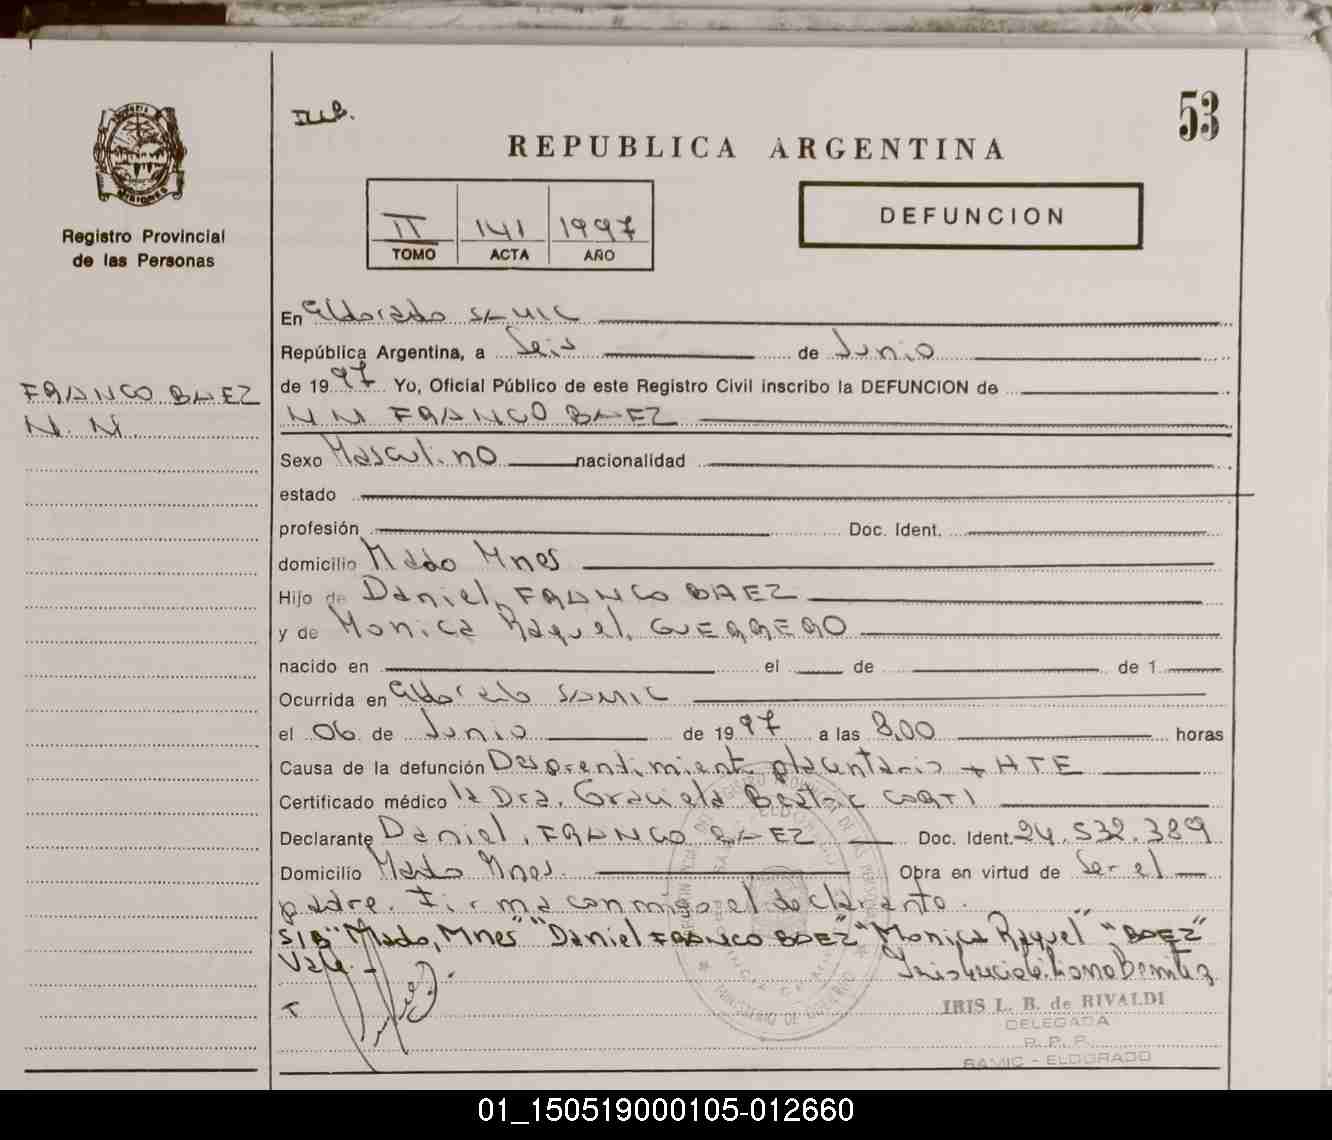 53
REPUBLICA ARGENTINA
Registro Provincial
de las Personas
II 141 1997
TOMO ACTA AÑO
DEFUNCION
FRANCO BAEZ
N. N.
En Eldorado SAMIC
República Argentina, a Seis de Junio
de 1997 Yo, Oficial Público de este Registro Civil inscribo la DEFUNCION de
NN FRANCO BAEZ
Sexo Masculino nacionalidad
estado
profesión Doc. Ident.
domicilio Mado Mnes
Hijo de Daniel FRANCO BAEZ
y de Monica Raquel GUERRERO
nacido en el de de 1
Ocurrida en Eldorado SAMIC
el 06 de Junio de 1997 a las 8,00 horas
Causa de la defunción Desprendimient. placentario + HTE
Certificado médico la Dra. Graciela Beatriz CORTI
Declarante Daniel, FRANCO BAEZ Doc. Ident. 24.532.389
Domicilio Mado Mnes. Obra en virtud de Ser el
padre. Firma conmigo el declarante.
S/B "Mado, Mnes" "Daniel FRANCO BAEZ" "Monica Raquel" "BAEZ"
Vale.-
IRIS L. B. de RIVALDI
DELEGADA
R. P. P.
SAMIC - ELDORADO
01_150519000105-012660